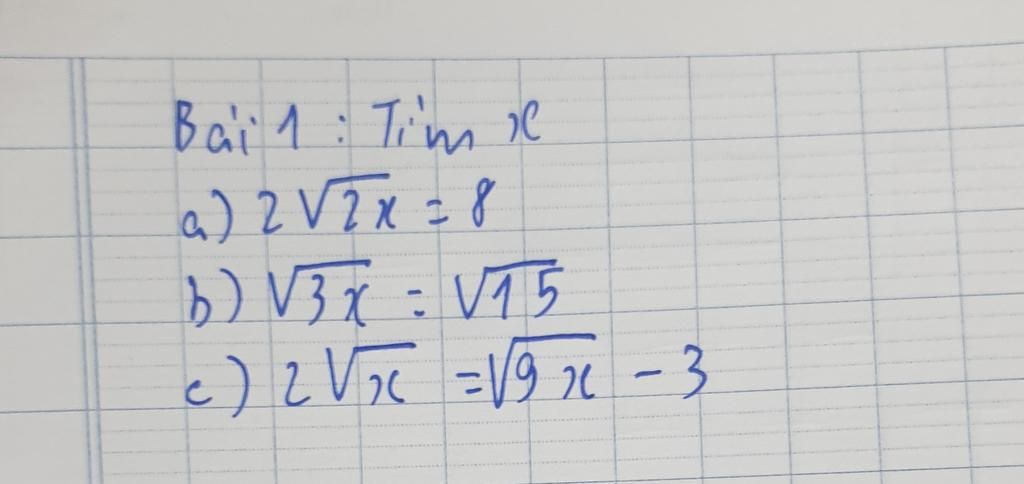 Bài 1 : Tìm x
a) 2√2x = 8
b) √3x = √15
c) 2√x = √9x - 3